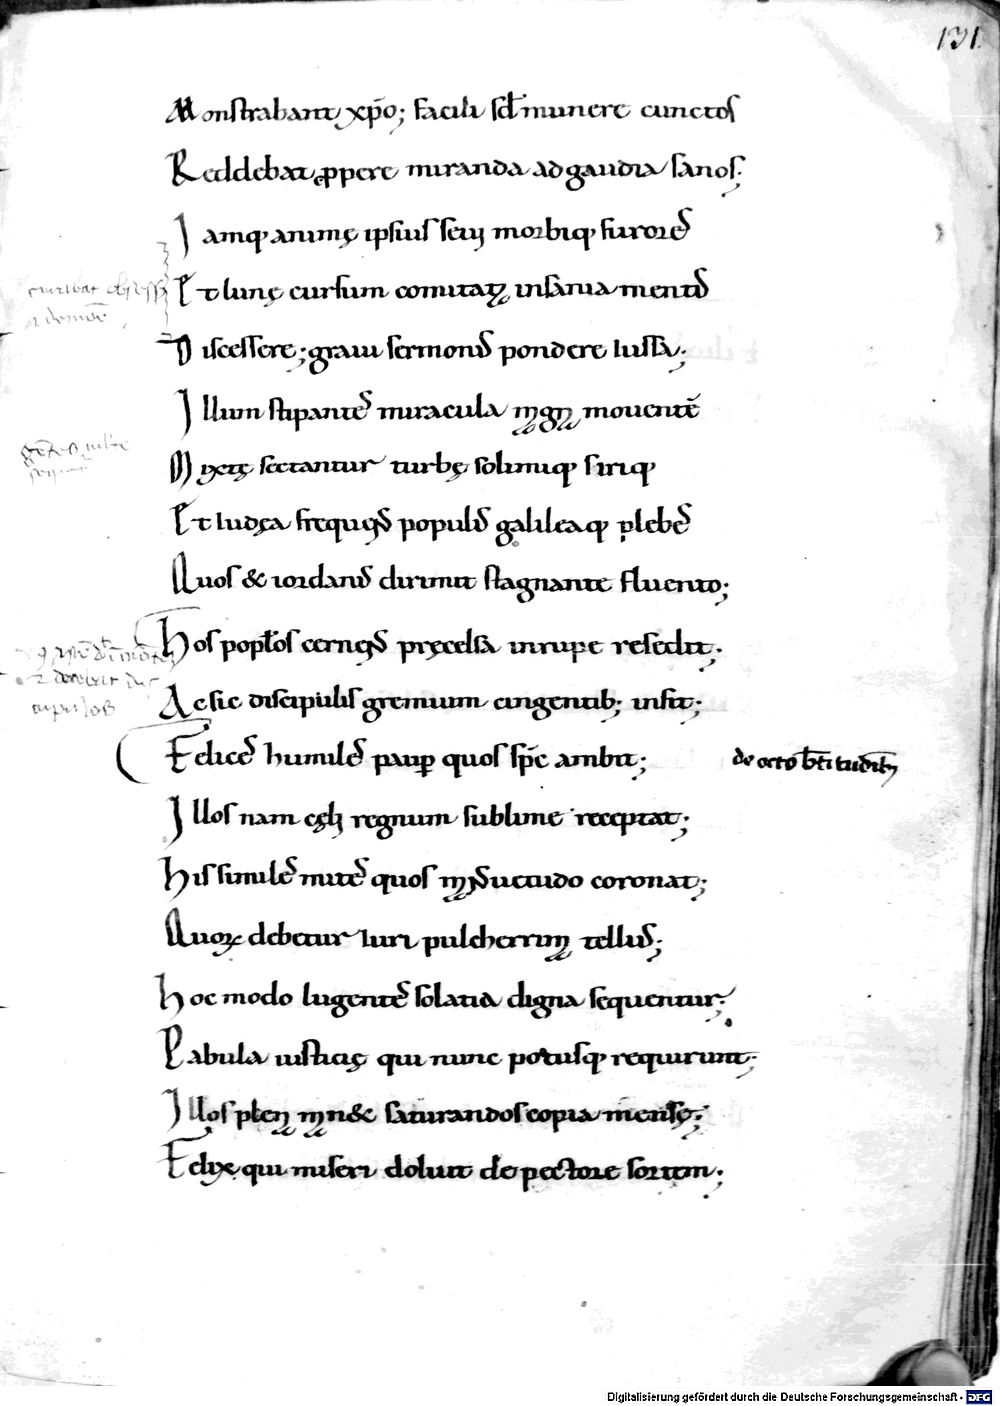 131.
Monstrabant xp̄o; facili sed munere cunctos
Reddebat ꝓpere miranda ad gaudia sanos;
Iamq; animę ipsius seuı morbiq; furores
Et lunę cursum comitata insania mentis
Discessere; graui sermonis pondere iussa;
Illum stipantes miracula magna mouentē
Myxtę sectantur turbę solimiq; siriq;
Et iudęa frequens populis galileaq; plebes
Quos & iordanis dirimit stagnante fluento;
Hos popłos cernens pręcelsa in rupe resedit;
Ac sic discipulis gremium cingentib; infit;
Felices humiles pauꝑ quos sp̄c ambit;
de octo
Illos nam cęli regnum sublime receptat;
His similes mites quos mansuetudo coronat;
Quoꝝ debetur iuri pulcherrima tellus;
Hoc modo lugentes solatia digna sequentur;
Pabula iustitię qui nunc potusq; requirunt;
Illos plena manet saturandos copia mensę;
Felix qui miseri doluit de pectore sortem;
Digitalisierung gefördert durch die Deutsche Forschungsgemeinschaft - DFG